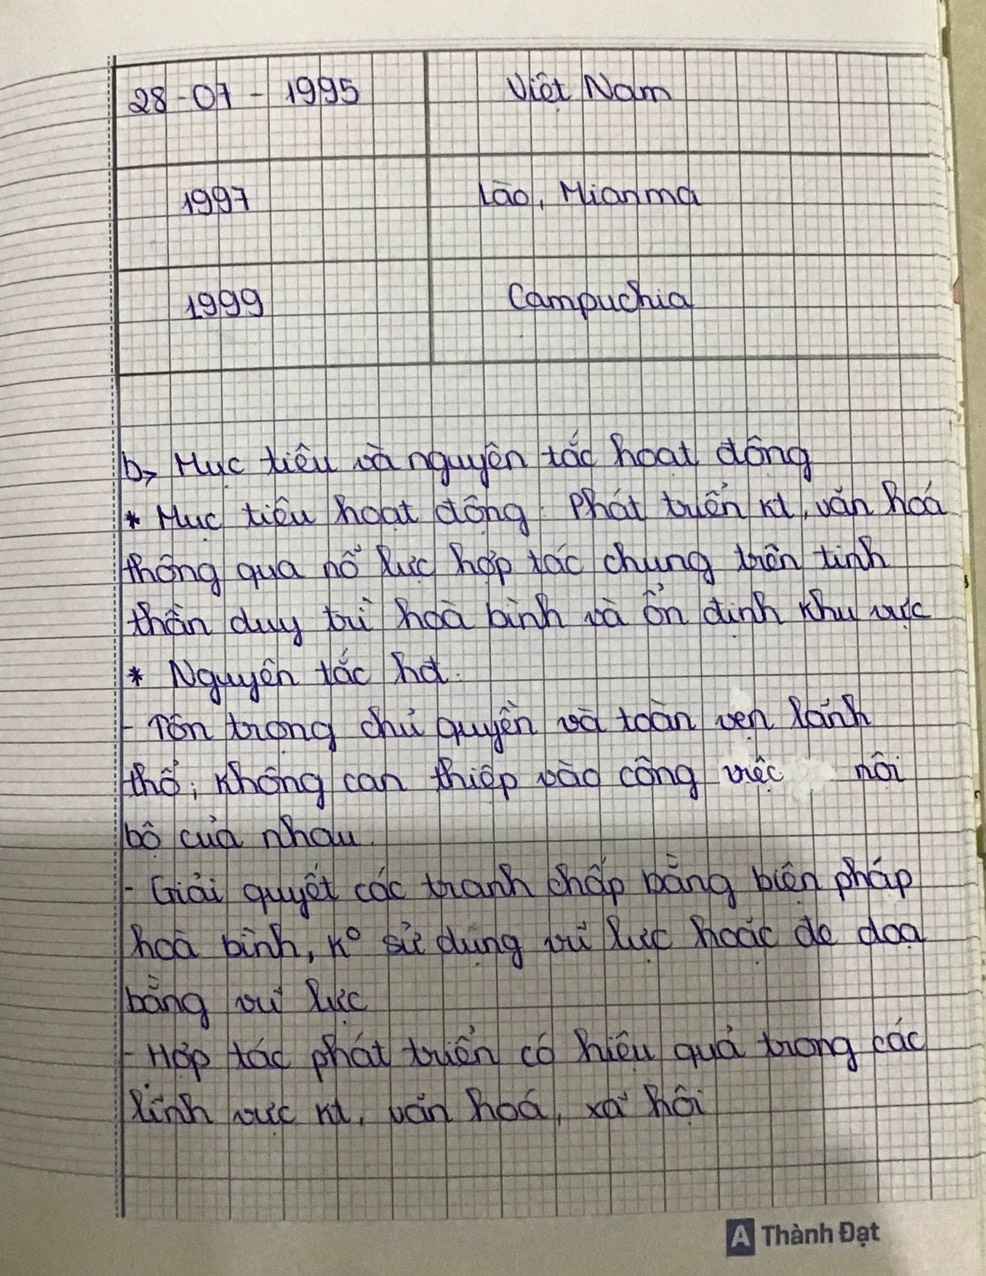 28-07-1995 Việt Nam
1997 Lào, Mianma
1999 Campuchia
b, Mục tiêu và nguyên tắc hoạt động
* Mục tiêu hoạt động: Phát triển kt, văn hoá
thông qua nỗ lực hợp tác chung trên tinh
thần duy trì hoà bình và ổn định khu vực
* Nguyên tắc hđ:
- Tôn trọng chủ quyền và toàn vẹn lãnh
thổ; không can thiệp vào công việc nội
bộ của nhau.
- Giải quyết các tranh chấp bằng biện pháp
hoà bình, k° sử dụng vũ lực hoặc đe doạ
bằng vũ lực
- Hợp tác phát triển có hiệu quả trong các
lĩnh vực kt, văn hoá, xã hội
A Thành Đạt